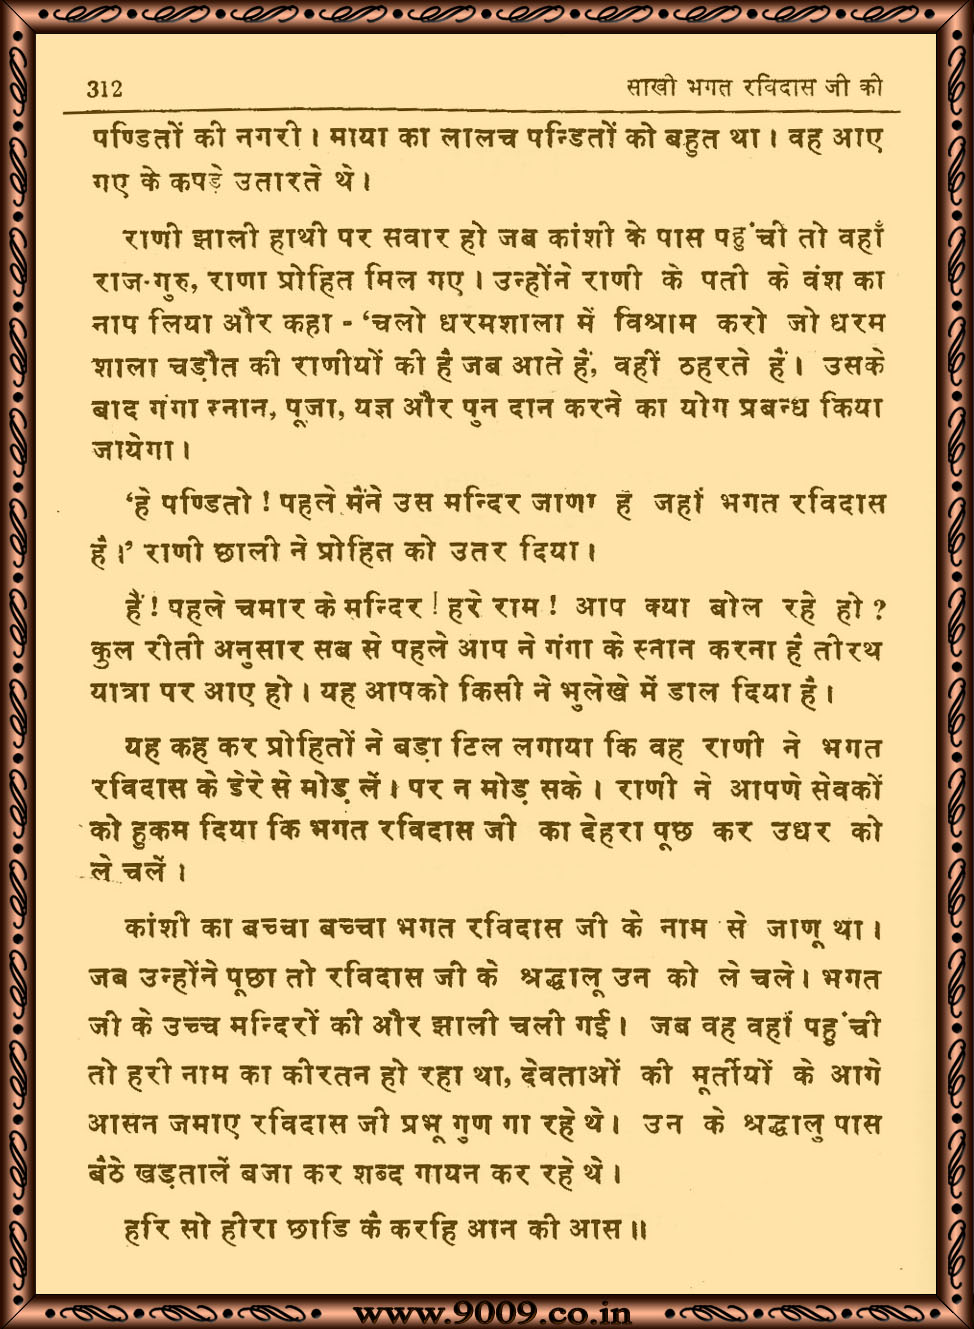 312 साखी भगत रविदास जी की
पण्डितों की नगरी। माया का लालच पन्डितों को बहुत था। वह आए
गए के कपड़े उतारते थे।
राणी झाली हाथी पर सवार हो जब कांशी के पास पहुंची तो वहाँ
राज-गुरु, राणा प्रोहित मिल गए। उन्होंने राणी के पती के वंश का
नाप लिया और कहा - ‘चलो धरमशाला में विश्राम करो जो धरम
शाला चड़ौत की राणीयों की है जब आते हैं, वहीं ठहरते हैं। उसके
बाद गंगा स्नान, पूजा, यज्ञ और पुन दान करने का योग प्रबन्ध किया
जायेगा।
‘हे पण्डितो ! पहले मैंने उस मन्दिर जाणा है जहां भगत रविदास
हैं।’ राणी छाली ने प्रोहित को उतर दिया।
हैं ! पहले चमार के मन्दिर ! हरे राम ! आप क्या बोल रहे हो ?
कुल रीती अनुसार सब से पहले आप ने गंगा के स्नान करना है तीरथ
यात्रा पर आए हो। यह आपको किसी ने भुलेखे में डाल दिया है।
यह कह कर प्रोहितों ने बड़ा टिल लगाया कि वह राणी ने भगत
रविदास के डेरे से मोड़ लें। पर न मोड़ सके। राणी ने आपणे सेवकों
को हुकम दिया कि भगत रविदास जी का देहरा पूछ कर उधर को
ले चलें।
कांशी का बच्चा बच्चा भगत रविदास जी के नाम से जाणू था।
जब उन्होंने पूछा तो रविदास जी के श्रद्धालू उन को ले चले। भगत
जी के उच्च मन्दिरों की और झाली चली गई। जब वह वहां पहुंची
तो हरी नाम का कीरतन हो रहा था, देवताओं की मूर्तीयों के आगे
आसन जमाए रविदास जी प्रभू गुण गा रहे थे। उन के श्रद्धालु पास
बैठे खड़तालें बजा कर शब्द गायन कर रहे थे।
हरि सो हीरा छाडि कै करहि आन की आस॥
www.9009.co.in